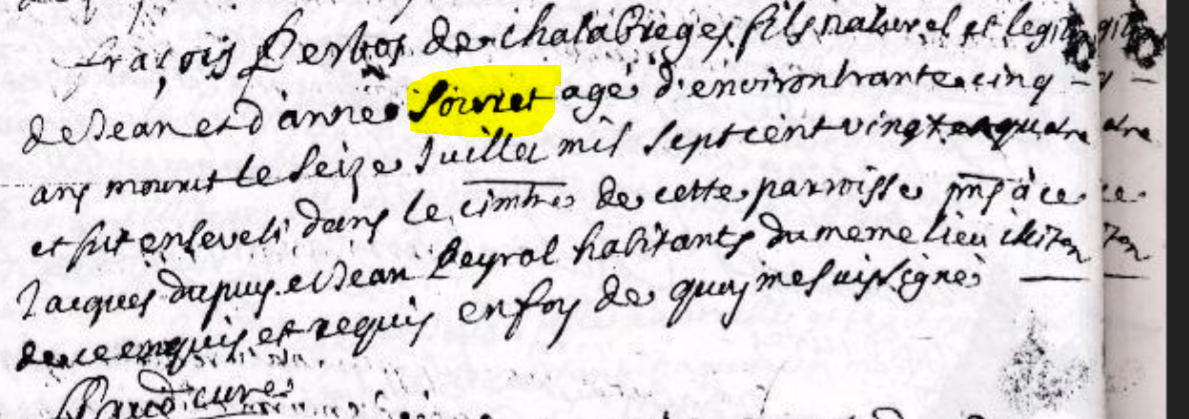 fraçois de chalabreges fils naturel et legit
de Jean et d'anne Souret agé d'environ trante cinq
ans mourut le seize Juillet mil sept cent vingt quatre
et fut enseveli dans le cimtre de cette parroisse pns à ce
Jacques dupuy et Jean Peyrol habitants du meme lieu
de ce enquis et requis en foy de quoy me suis signé
curé